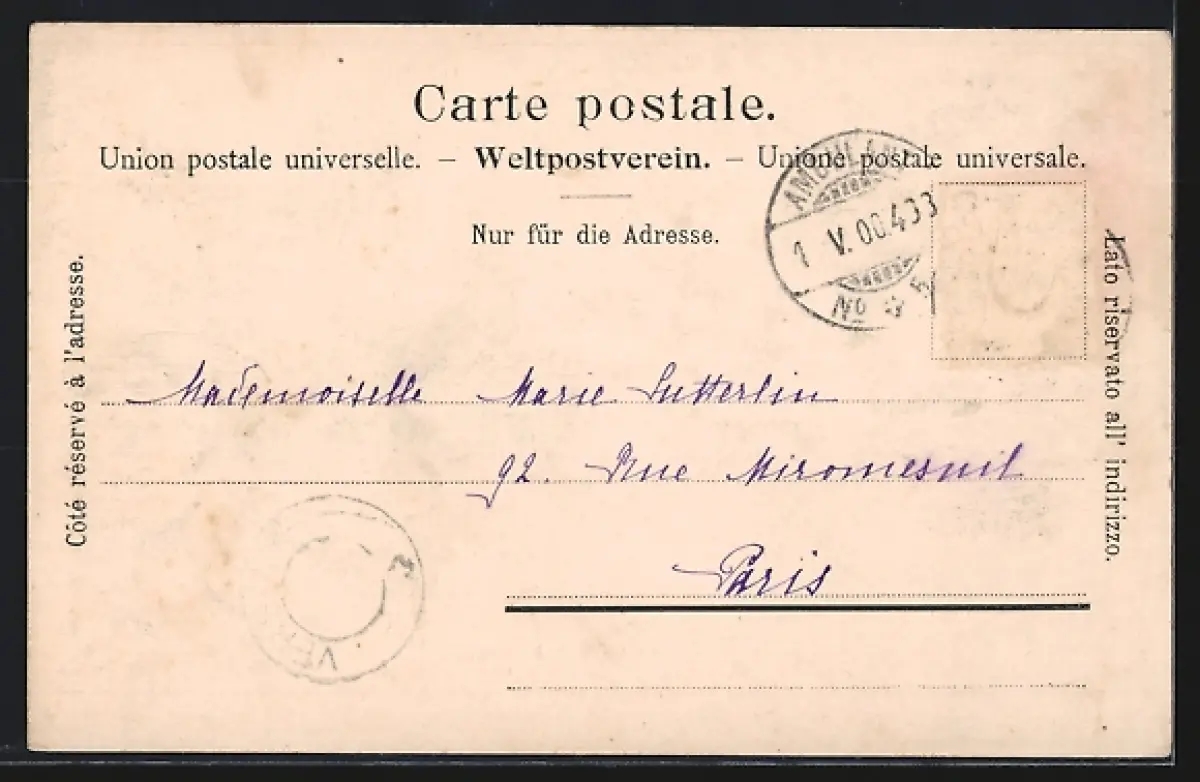 Carte postale.
Union postale universelle. – Weltpostverein. – Unione postale universale.
Nur für die Adresse.
AMBULANT
1 V.00.4
No 5
Côté réservé à l'adresse.
Lato riservato all' indirizzo.
Mademoiselle Marie Sutterlin
92. Rue Miromesnil
Paris